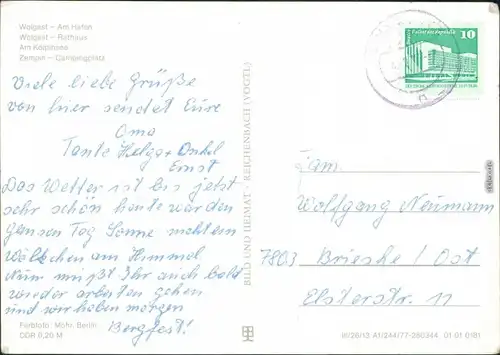 Wolgast – Am Hafen
Wolgast – Rathaus
Am
Zempin – Campingplatz
Viele liebe Grüße
von hier sendet Eure
Oma
Tante Helga + Onkel
Ernst
Das Wetter ist bis jetzt
sehr schön heute war den
ganzen Tag Sonne nicht ein
Wölkchen am Himmel
Nun müßt Ihr auch bald
wieder arbeiten gehen
und wir haben morgen
Bergfest!
Farbfoto: Mohr, Berlin
DDR 0,20 M
BILD UND HEIMAT · REICHENBACH (VOGTL)
10
Fam.
Wolfgang Neumann
7803 Brieske / Ost
Elsterstr. 11
III/26/13 A1/244/77-280344 01 01 0181